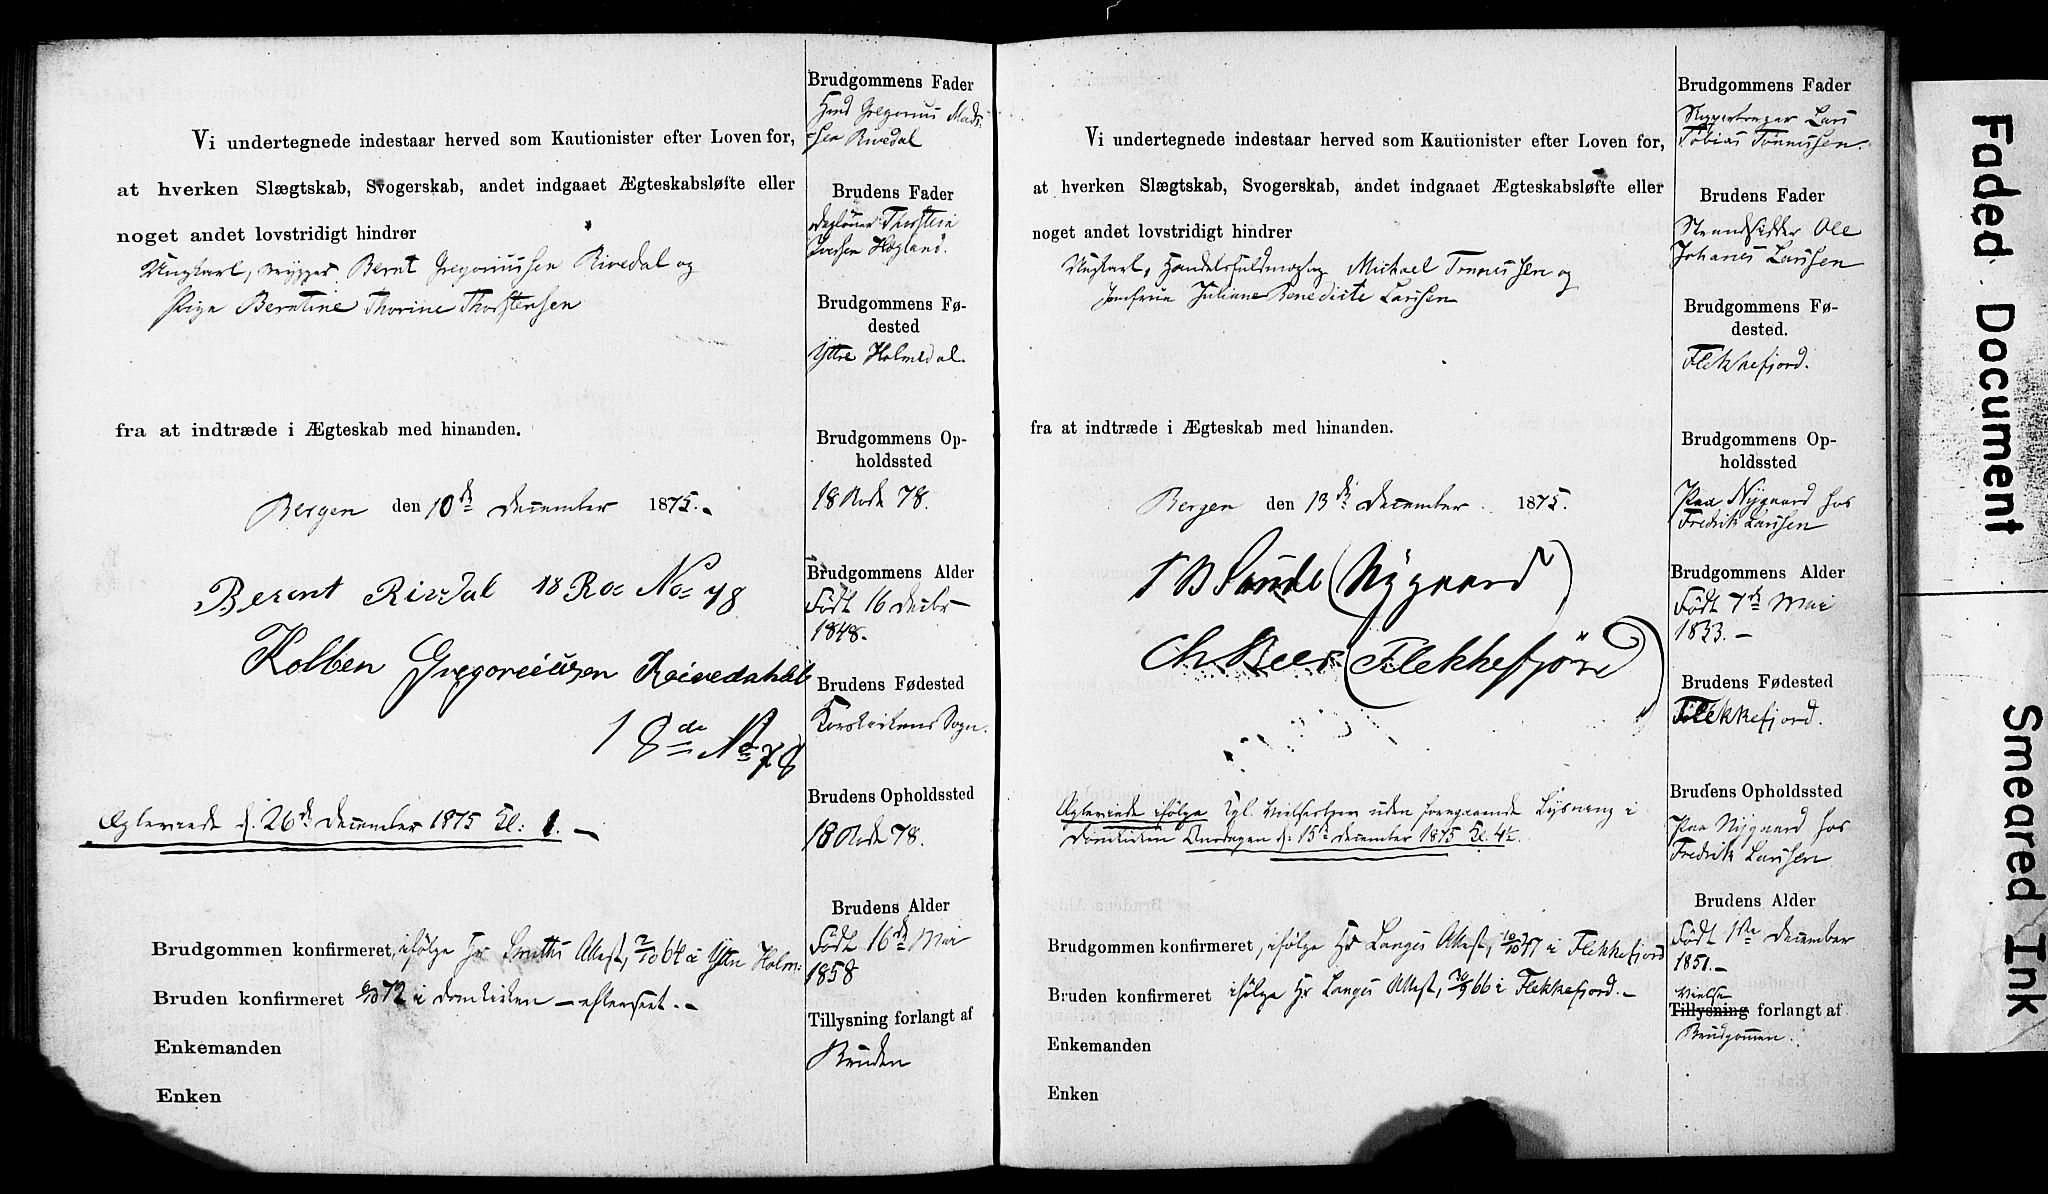 Vi undertegnede indestaar herved som Kautionister efter Loven for,
at hverken Slægtskab, Svogerskab, andet indgaaet Ægteskabsløfte eller
noget andet lovstridigt hindrer
Ungkarl, Brygger Bernt Gregoriussen Rivedal og
Pige Berntine Thorine Thorstensen
fra at indtræde i Ægteskab med hinanden.
Bergen den 10de December 1875.
Bernt Rivdal 18 Ro No 78
Kolben Gregoriussen Reivedahl
18de No 78
Ægteviede d. 26de December 1875 Kl: 1.
Brudgommen konfirmeret, ifølge Hr Smiths Attest, 2/10 64 i Ytre Holm:
Bruden konfirmeret 6/10 72 i Domkirken - efterseet. -
Enkemanden
Enken
Brudgommens Fader
Hmd Gregorius Mads-
sen Rivedal
Brudens Fader
Dagleier Thorstein
Iversen Hogland.
Brudgommens Fø-
dested
Ytre Holmedal.
Brudgommens Op-
holdssted
18 Rode 78.
Brudgommens Alder
Født 16 Decbr
1848.
Brudens Fødested
Korskirkens Sogn.
Brudens Opholdssted
18 Rode 78.
Brudens Alder
Født 16de Mai
1858
Tillysning forlangt af
Bruden
Vi undertegnede indestaar herved som Kautionister efter Loven for,
at hverken Slægtskab, Svogerskab, andet indgaaet Ægteskabsløfte eller
noget andet lovstridigt hindrer
Ungkarl, Handelsfuldmægtig Michael Tønnessen og
Jomfrue Juliane Benedicte Larssen
fra at indtræde i Ægteskab med hinanden.
Bergen den 13de December 1875.
T B Sunde (Nygaard)
Ch Beer (Flekkefjord)
Ægteviede ifølge Kgl. Vielsesbrev uden foregaaende Lysning i
Domkirken Onsdagen d: 15de December 1875 Kl. 4½.
Brudgommen konfirmeret, ifølge Hr Langes Attest, 10/10 47 i Flekkefjord
Bruden konfirmeret ifølge Hr Langes Attest, 30/9 66 i Flekkefjord. -
Enkemanden
Enken
Brudgommens Fader
Lars
Tobias Tønnessen.
Brudens Fader
Strandsidder Ole
Johanes Larssen
Brudgommens Fø-
dested.
Flekkefjord.
Brudgommens Op-
holdssted
Paa Nygaard hos
Fredrik Larssen
Brudgommens Alder
Født 7de Mai
1833. -
Brudens Fødested
Flekkefjord.
Brudens Opholdssted
Paa Nygaard hos
Fredrik Larssen
Brudens Alder
Født 1ste December
1851. -
Vielse
Tillysning forlangt af
Brudgommen.
Faded Document
Smeared Ink